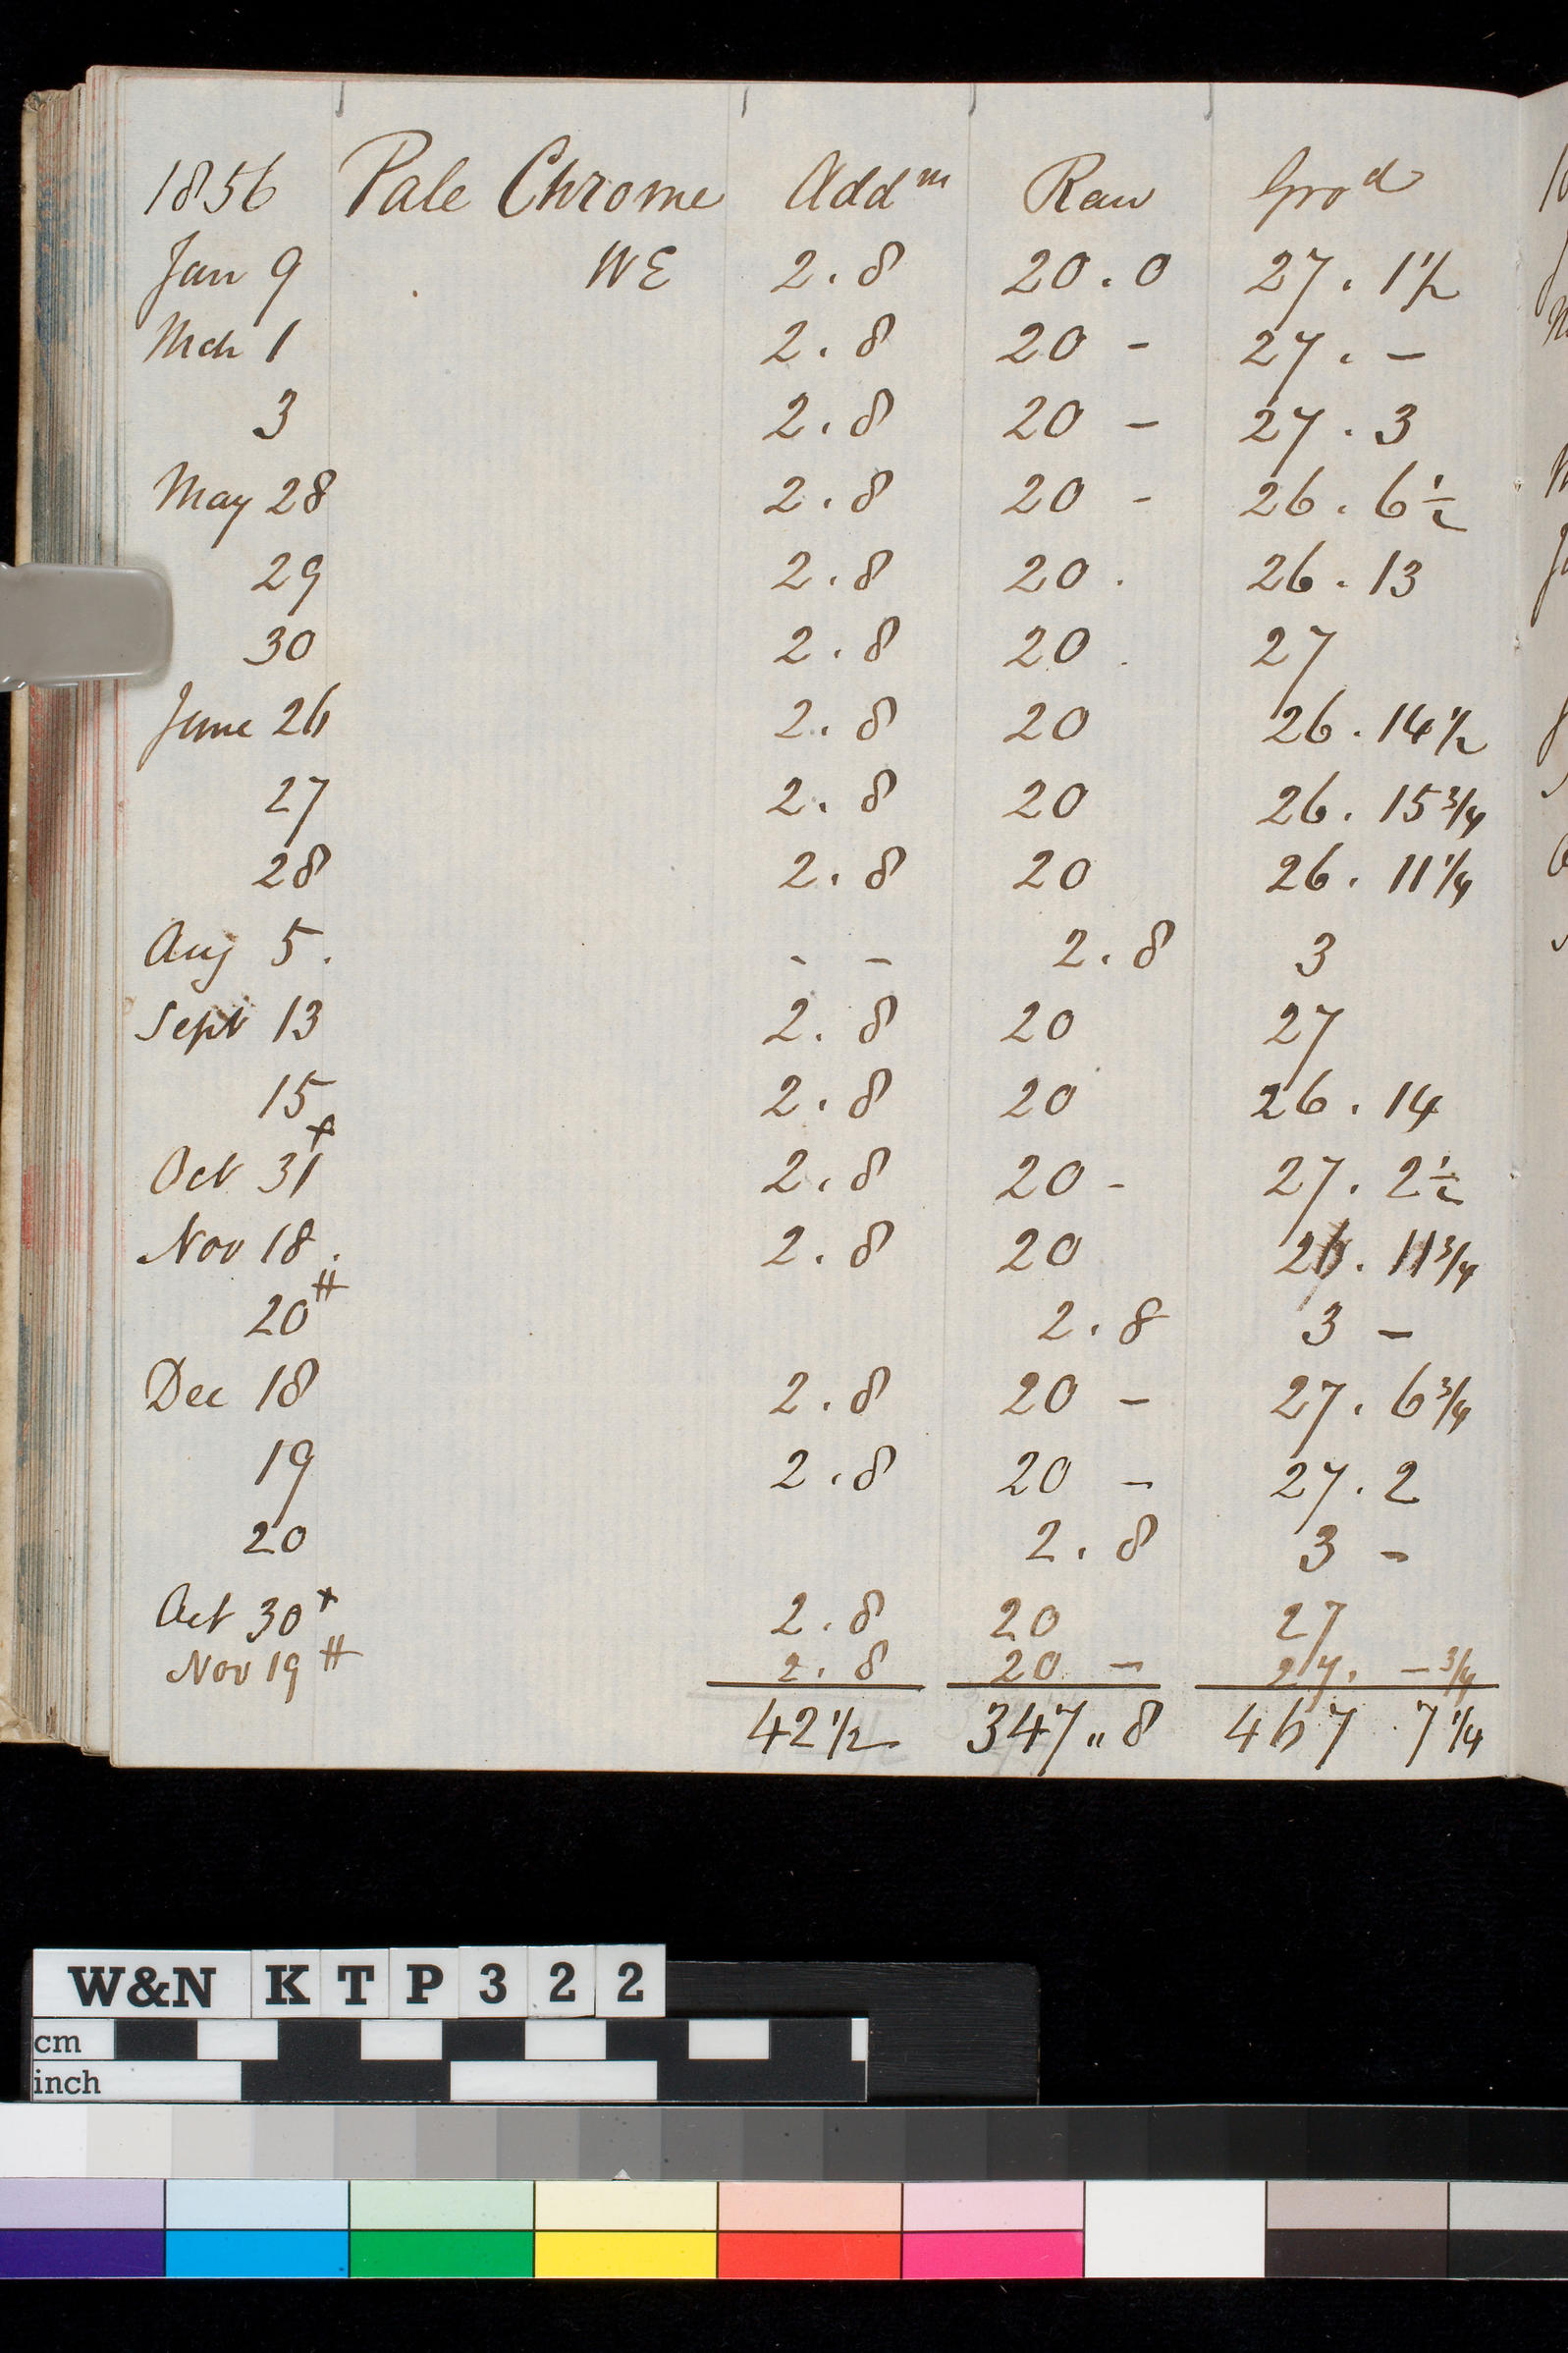 1856 Pale Chrome Addm Raw Grod
Jan 9 WE 2.8 20.0 27.1 1/2
Mch 1 2.8 20 - 27. -
3 2.8 20 - 27.3
May 28 2.8 20 - 26.6 1/2
29 2.8 20. 26.13
30 2.8 20. 27
June 26 2.8 20 26.14 1/2
27 2.8 20 26.15 3/4
28 2.8 20 26.11 1/4
Aug 5. - - 2.8 3
Sept 13 2.8 20 27
15 2.8 20 26.14
Oct 31 + 2.8 20 - 27.2 1/2
Nov 18. 2.8 20 26.11 3/4
20 # 2.8 3 -
Dec 18 2.8 20 - 27.6 3/4
19 2.8 20 - 27.2
20 2.8 3 -
Oct 30 + 2.8 20 27
Nov 19 # 2.8 20 - 27. - 3/4
42 1/2 347 " 8 467 . 7 1/4
W&N KTP322
cm
inch